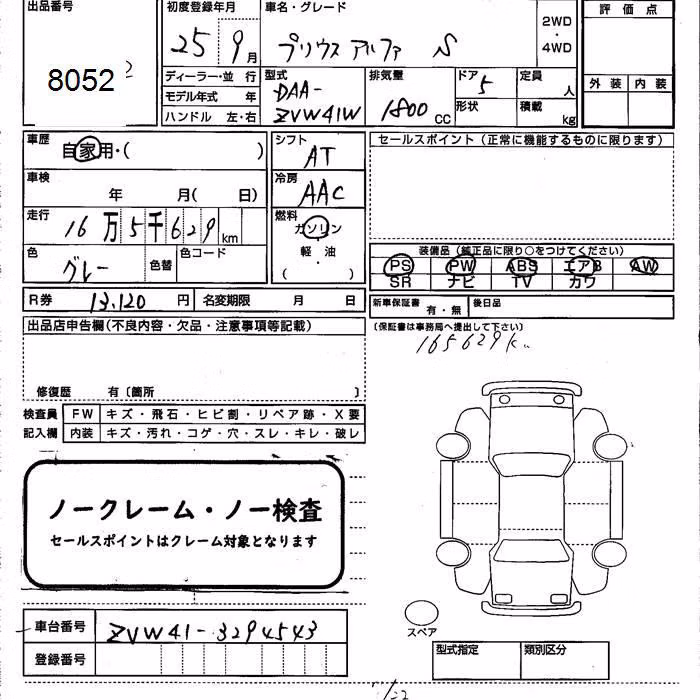 出品番号
8052
初度登録年月
25 9月
車名・グレード
プリウスアルファ S
2WD
・
4WD
評価点
外装 内装
ディーラー・並 行
モデル年式 年
ハンドル 左・右
型式
DAA-
ZVW41W
排気量
1800 CC
ドア 5
形状
定員 人
積載 kg
車歴
自家用・( )
シフト
AT
車検
年 月( 日)
冷房
AAC
走行
16万5千629km
燃料
ガソリン
・
軽・油
・
( )
色
グレー
色替
色コード
R券 13,120 円
名変期限 月 日
セールスポイント(正常に機能するものに限ります)
装備品(純正品に限り○をつけてください)
PS PW ABS エアB AW
SR ナビ TV カワ
新車保証書 有・無
後日品
(保証書は事務局へ提出して下さい)
165629km
出品店申告欄(不良内容・欠品・注意事項等記載)
修復歴 有〔箇所 〕
検査員 FW キズ・飛石・ヒビ割・リペア跡・X要
記入欄 内装 キズ・汚れ・コゲ・穴・スレ・キレ・破レ
ノークレーム・ノー検査
セールスポイントはクレーム対象となります
車台番号 ZVW41-3294543
登録番号
スペア
型式指定 類別区分